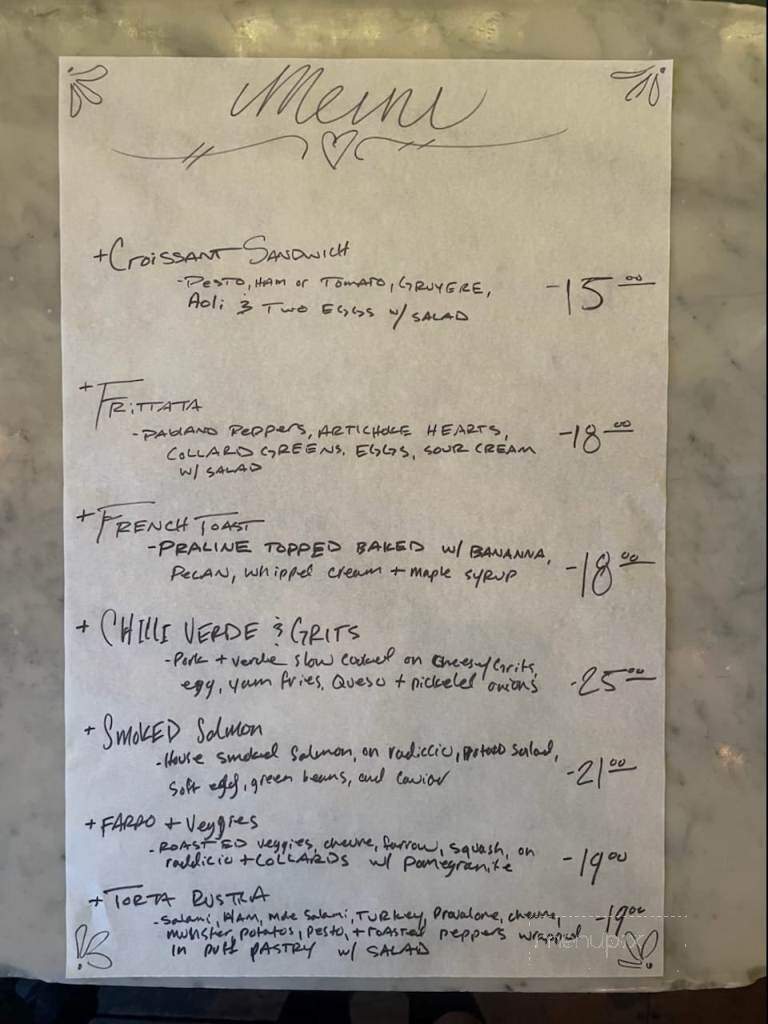 Menu
+Croissant Sandwich
-Pesto, Ham or Tomato, Gruyere, -15.00
Aoli & Two Eggs w/ Salad
+Frittata
-Pablano Peppers, Artichoke Hearts, -18.00
Collard Greens, Eggs, Sour Cream
w/ Salad
+French Toast
-Praline Topped Baked w/ Bananna, -18.00
Pecan, whipped cream + maple syrup
+ Chilli Verde & Grits
-Pork + verde slow cooked on cheesey Grits,
egg, yam fries, Queso + pickeled onions -25.00
+ Smoked Salmon
-House smoked Salmon, on radiccio, potato salad, -21.00
soft egg, green beans, and caviar
+ Farro + Veggies
-Roasted veggies, chevre, farrow, squash, on -19.00
raddicio + Collards w/ pomegranite
+ Torta Rustka
-Salami, Ham, mde Salami, Turkey, Provalone, chevre, -19.00
munster, potatos, pesto, + roasted peppers wrapped
in puff pastry w/ Salad
menupix